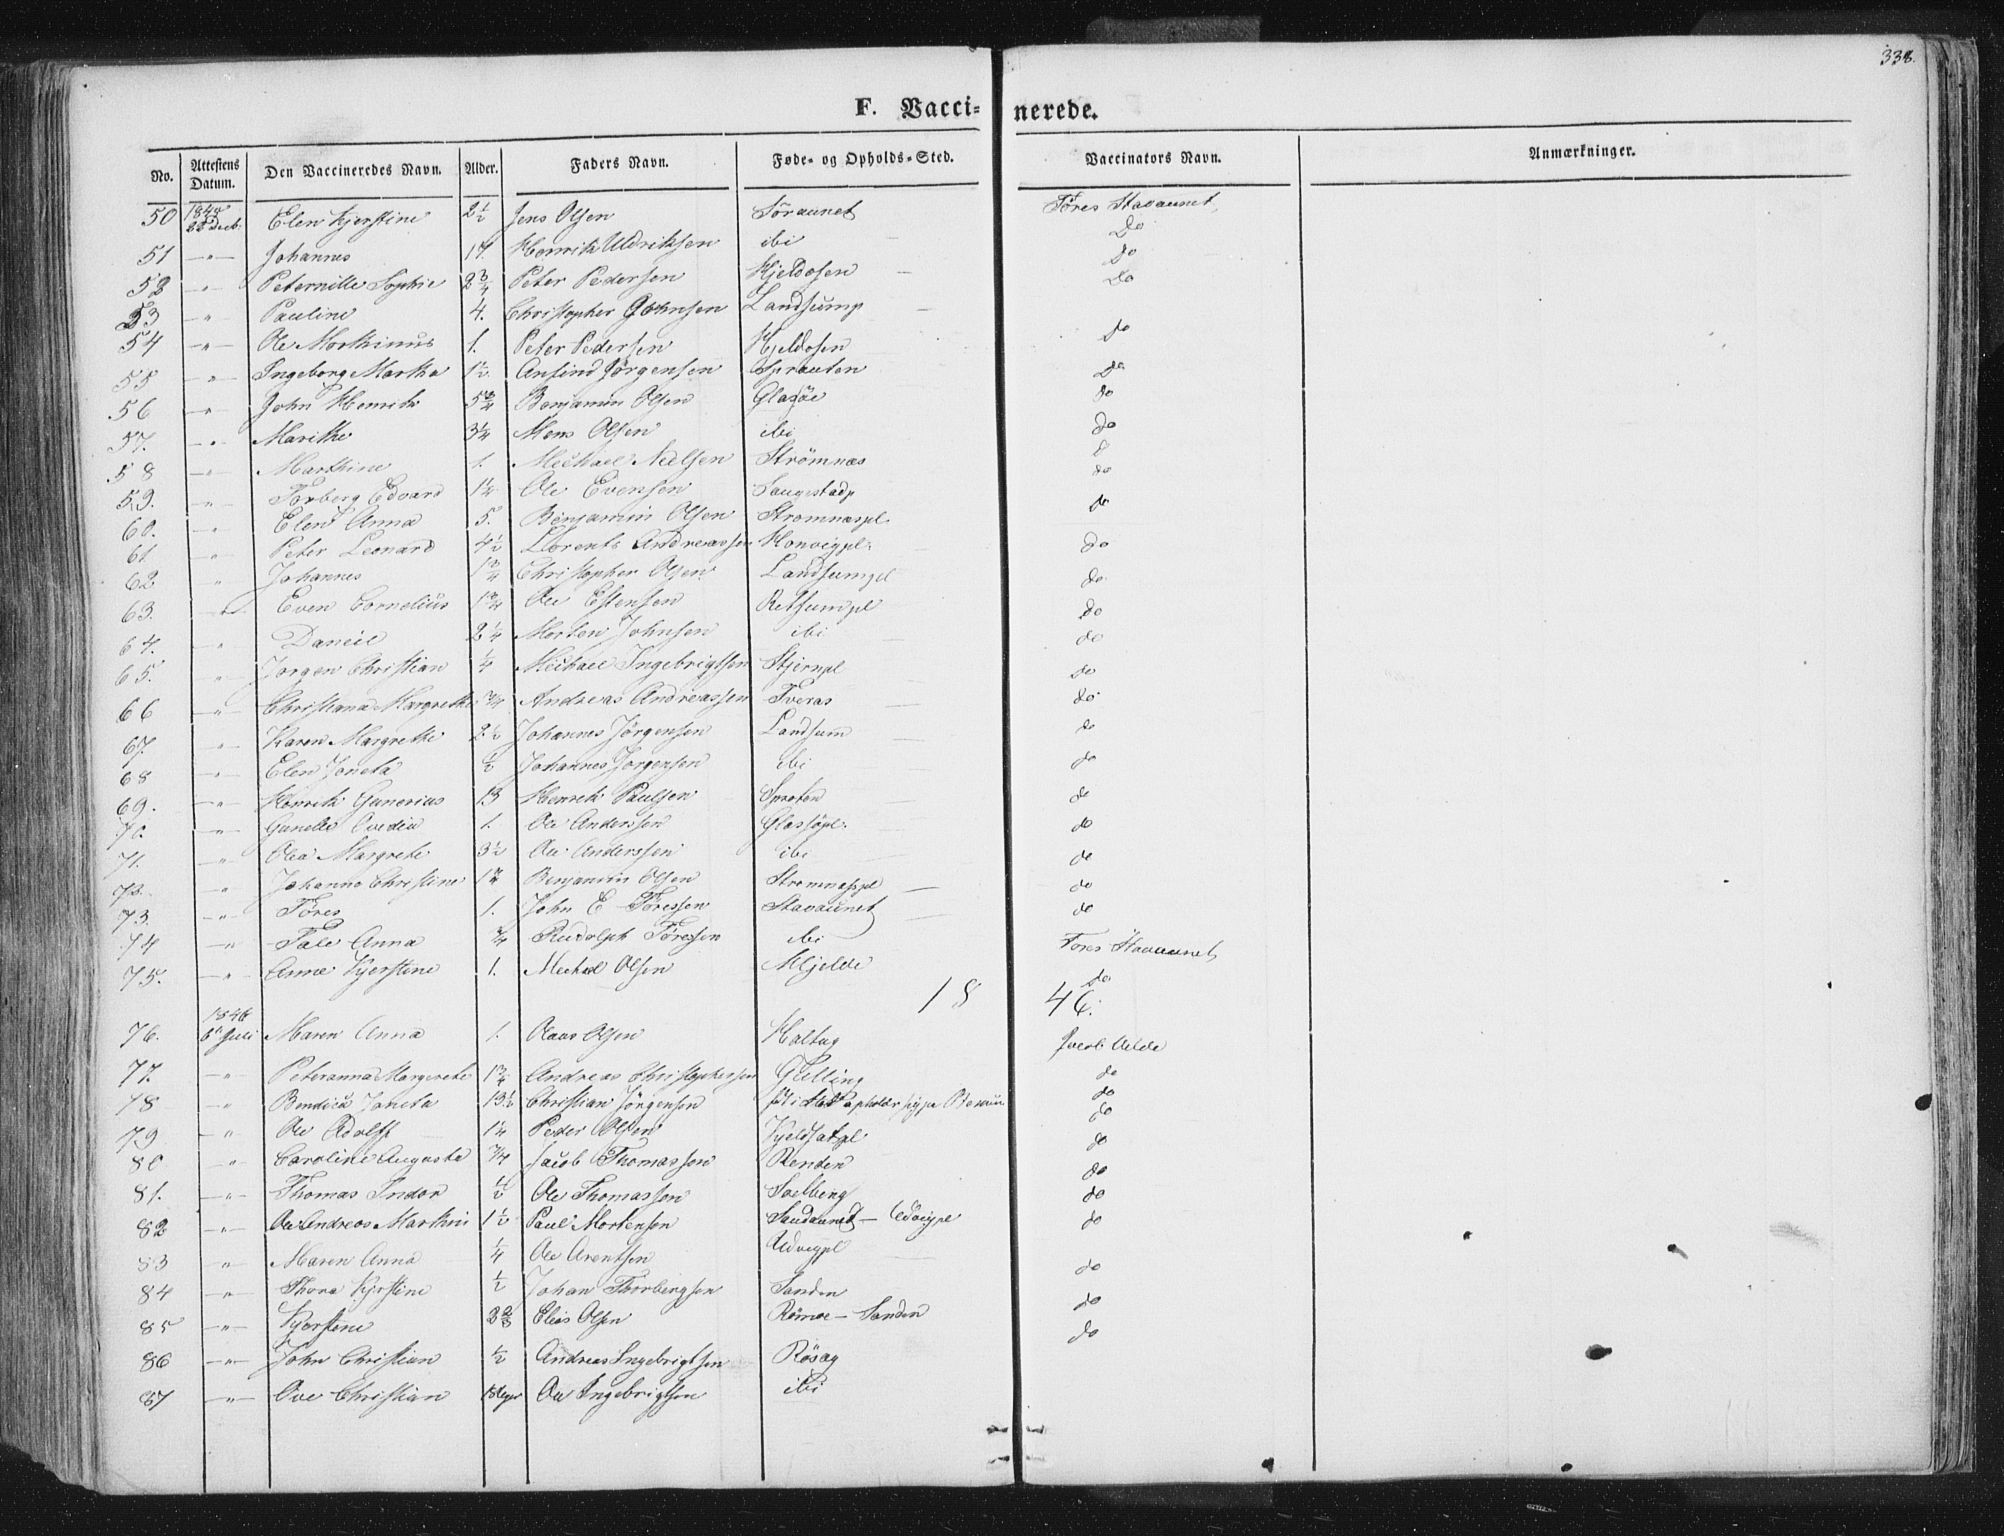 338.
F. Vacci- nerede.
No. Attestens Datum. Den Vaccineredes Navn. Alder. Faders Navn. Føde- og Opholds-Sted. Vaccinators Navn. Anmærkninger.
50 1845 22 Decb: Elen Kjerstine 2 1/2 Jens Olsen Søraunet Føres Stavaunet
51 -"- Johannes 17. Henrik Uldriksen ibi Do
52 " Peternille Sophie 2 3/4 Peter Pedersen Kjeldosen Do
53 " Pauline 4. Christopher Johnsen Landsump Do
54 -"- Ole Mathinus 1. Peter Pedersen Kjeldosen do
55 -"- Ingeborg Martha 1 1/2 Ansind Jörgensen Sprauten Do
56 -"- John Henrik 5 3/4 Benjamin Olsen Glasöe do
57. -"- Marithe 3 1/4 Mons Olsen ibi do
58 -"- Marthine 1. Michael Nielsen Strömnæs
59. " Torberg Edvard 1 1/4 Ole Evensen Saugestadp do
60. " Elen Anna 5. Benjamin Olsen Stromnæspl. do
61 " Peter Leonard 4 1/2 Llorents Andreassen Honvigpl. do
62 " Johannes 1 3/4 Christopher Olsen Landsumpl do
63. " Even Cornelius 1 3/4 Ole Estensen Retsumpl do
64. " Daneil 2 1/4 Morten Johnsen ibi do
65. " Jorgen Christian 1/4 Michael Ingebrigtsen Stjernpl do
66 " Christiana Margrethe 3/4 Andreas Andreassen Tveras do
67. " Karen Margrethe 2 1/2 Johannes Jörgensen Landsum do
68 -"- Elen Joneta 1/2 Johannes Jorgensen ibi do
69. -"- Henrik Gunerius 13 Henrik Paulsen Sproten do
70. " Gunelle Ovedia 1. Ole Andersen Glassöpl. do
71. " Olea Margrete 3 1/2 Ole Anderssen ibi do
72. " Johanna Christine 1 3/4 Benjamin Olsen Stromnæspl do
73 -"- Föres 1. John E Föressen Stavaunet do
74 -"- Tale Anna 3/4 Rudolph Föressen ibi Fores Stavaunet
75. -"- Anne Kjerstine 1. Michel Olsen Mjelde do
18 46.
76. 1846 6te Juli Maren Anna 1. Klaus Olsen Haltug Jacob Uelda
77. " Peteranna Margrete 1 3/4 Andreas Christophersen Gjelling do
78 " Bendica Joneta 13 1/2 Christian Jörgensen do
79. " Ole Adolff 1 1/4 Peder Olsen Kjeldsatpl do
80 " Caroline Augusta 3/4 Jacob Thomassen Renden do
81. " Thomas Indor 1/2 Ole Thomassen Saelberg do
82 -"- Ole Andreas Marthin 1 1/2 Paul Mortensen Sandaunet – Udvigpl do
83 -"- Maren Anna 1/4 Ole Arentsen Udvigpl do
84 -"- Thora Kjerstine 1/2 Johan Thorbergsen Sanden do
85 -"- Kjerstine 2 2/3 Elias Olsen Römoe – Sanden do
86 -"- John Christian 1/2 Andreas Ingebrigtsen Rösag do
87 -"- Ove Christian Ole Ingebrigtsen ibi